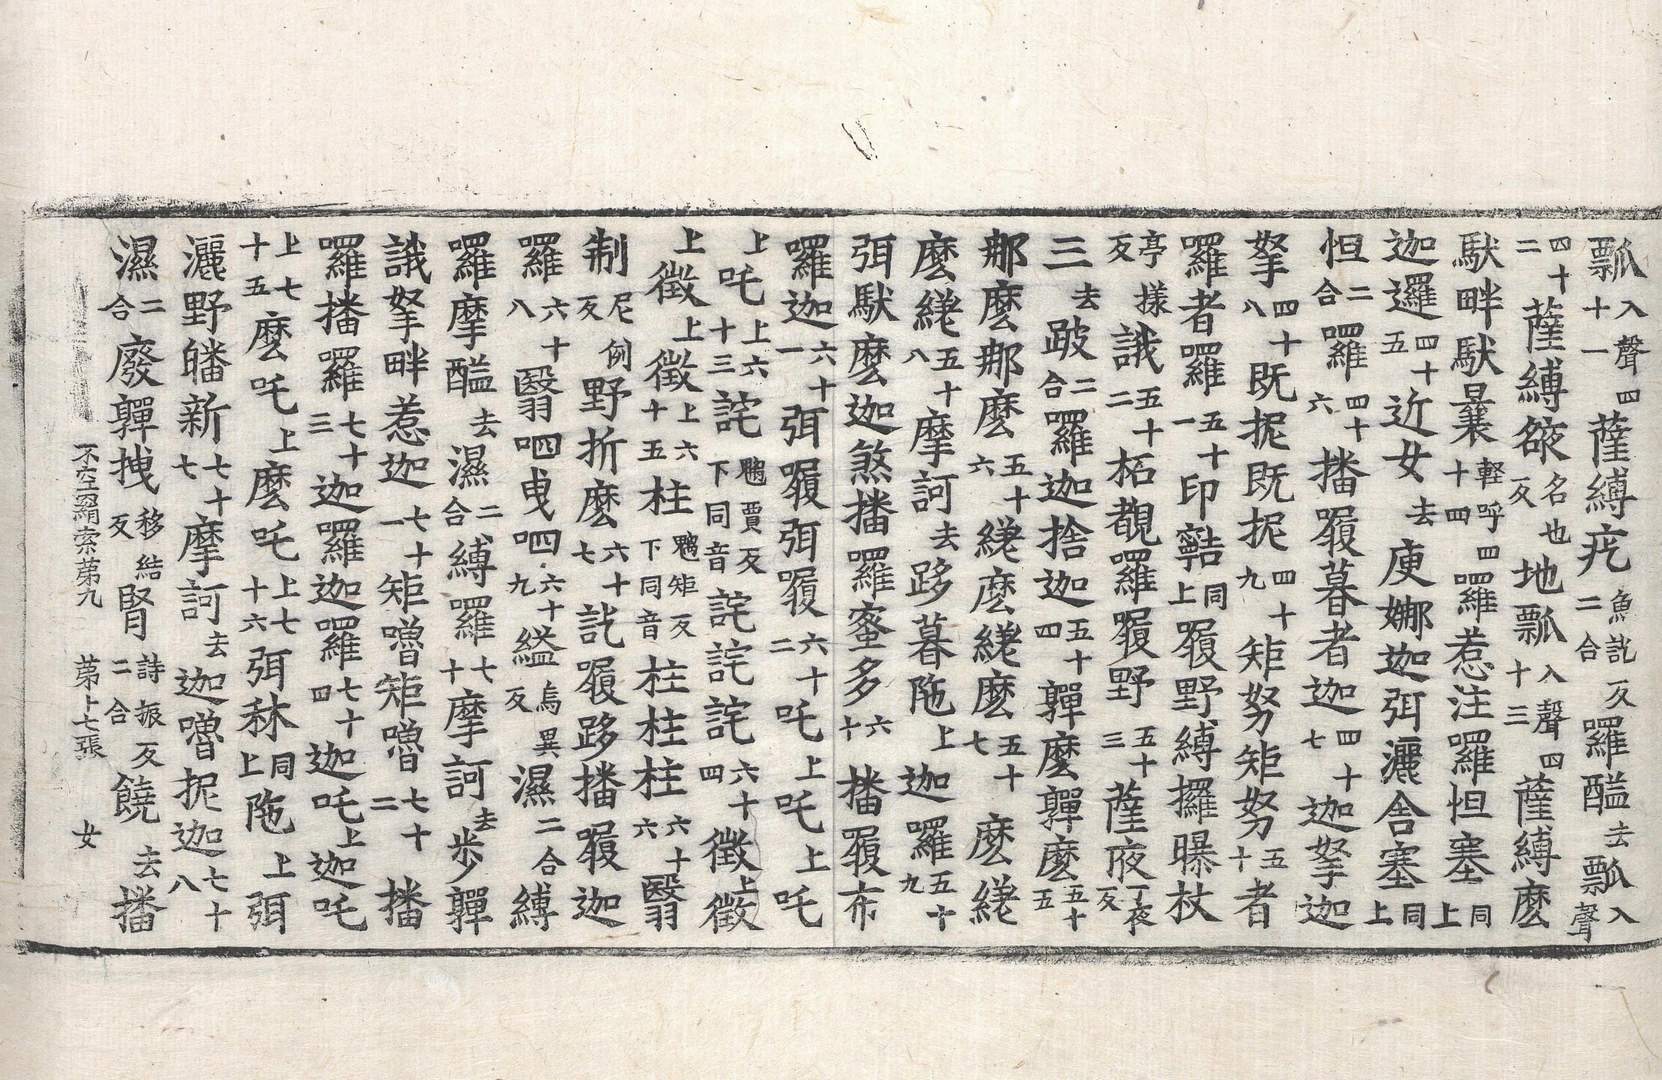 瓢入聲四十一薩縛疙魚訖反二合羅醯去瓢入聲
四十二薩縛䫂名也反地瓢入聲四十三薩縛麽
䭾畔䭾曩輕呼四十四囉惹注羅怛塞同上
迦邏四十五近女去庾娜迦弭灑舍塞同上
怛二合囉四十六播履暮者迦四十七迦拏迦
拏四十八既抳既抳四十九矩努矩努五十者
羅者羅五十一印𩕳同上履野縛攞曝杖
亭㨾反誐五十二柘覩羅履野五十三薩𠗦丁夜反
三去跛二合羅迦捨迦五十四嚲麽嚲麽五十五
那麽那麽五十六䌈麽䌈麽五十七麽䌈
麽䌈五十八摩訶去跢暮陁上迦囉五十九
弭䭾麽迦煞播囉蜜多六十播履布
囉迦六十一弭履弭履六十二吒上吒上吒
上吒上六十三詫鶐賈反下同音詫詫詫六十四徵上徵
上徵上徵上六十五柱鶐矩反下同音柱柱柱六十六翳
制尼例反野折麽六十七訖履跢播履迦
囉六十八翳呬曳呬六十九縊烏異反濕二合縛
囉摩醯去濕二合縛羅七十摩訶去步嚲
誐拏畔惹迦七十一矩嚕矩嚕七十二播
囉播囉七十三迦囉迦囉七十四迦吒上迦吒
上七十五麽吒上麽吒上七十六弭秫同上陁上弭
灑野皤新七十七摩訶去迦嚕抳迦七十八
濕二合廢嚲拽移結反腎詩振反二合饒去播
不空羂索第九 第十七張 女